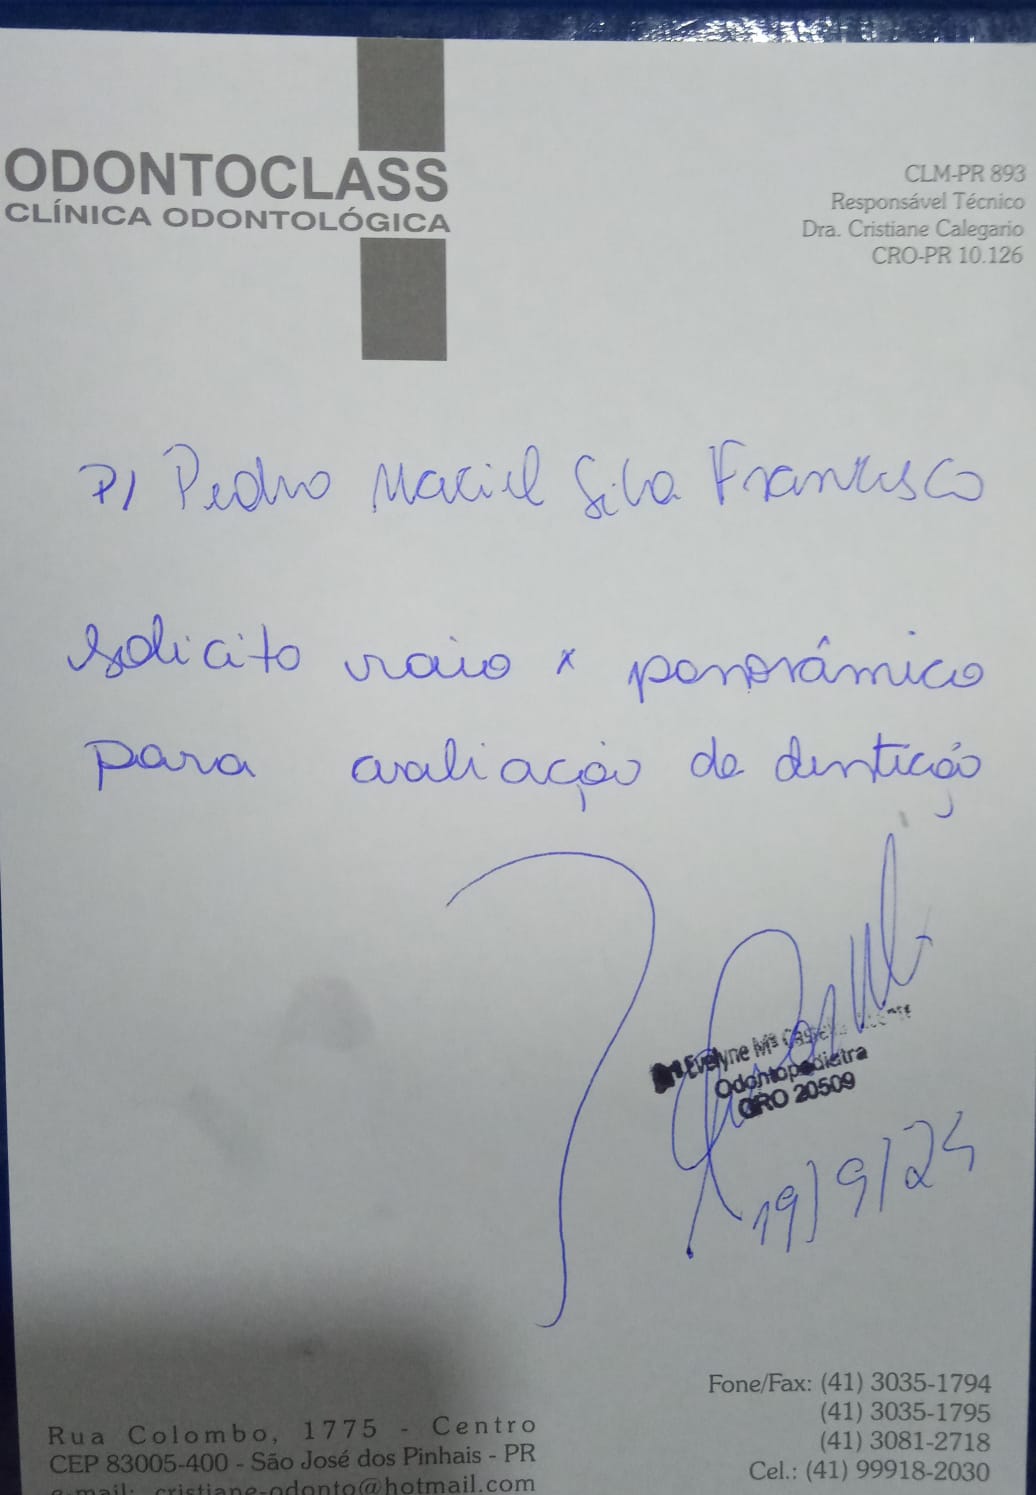 ODONTOCLASS
CLÍNICA ODONTOLÓGICA
CLM-PR 893
Responsável Técnico
Dra. Cristiane Calegario
CRO-PR 10.126
P/ Pedro Maciel Silva Francisco
Solicito raio x panorâmico
para avaliação da dentição
Evelyne Mª
Odontopediatra
CRO 20509
19/9/24
Rua Colombo, 1775 - Centro
CEP 83005-400 - São José dos Pinhais - PR
e-mail: cristiane-odonto@hotmail.com
Fone/Fax: (41) 3035-1794
(41) 3035-1795
(41) 3081-2718
Cel.: (41) 99918-2030